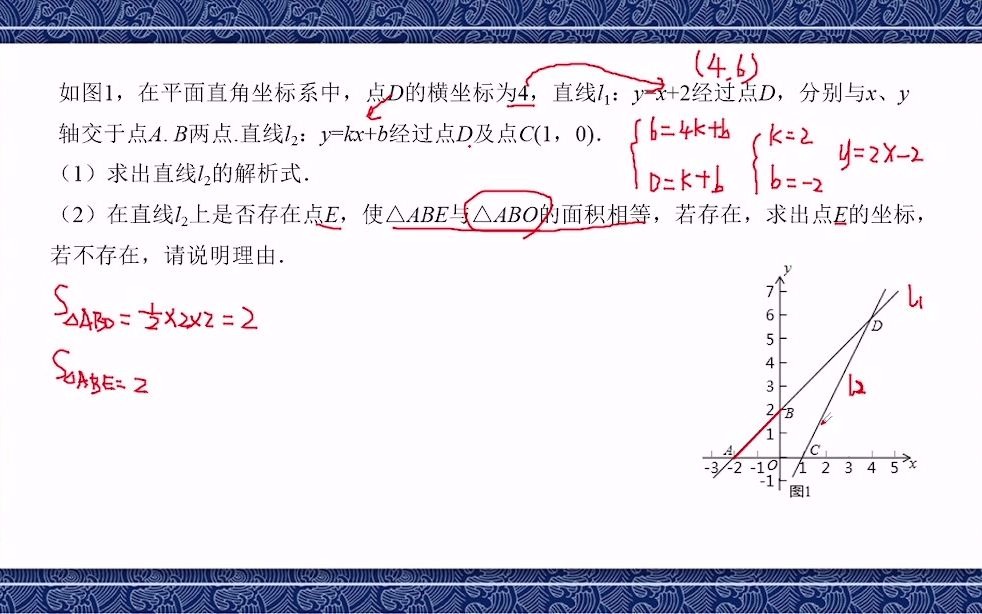 (4,6)
如图1，在平面直角坐标系中，点D的横坐标为4，直线l₁：y=x+2经过点D，分别与x、y
轴交于点A. B两点.直线l₂：y=kx+b经过点D及点C(1，0).
6=4k+b
0=k+b
k=2
b=-2
y=2x-2
（1）求出直线l₂的解析式.
（2）在直线l₂上是否存在点E，使△ABE与△ABO的面积相等，若存在，求出点E的坐标，
若不存在，请说明理由.
S△ABO=½×2×2=2
S△ABE=2
y
7
6
5
4
3
2
1
-1
-3 -2 -1 O 1 2 3 4 5 x
A
B
C
D
l₁
l₂
图1